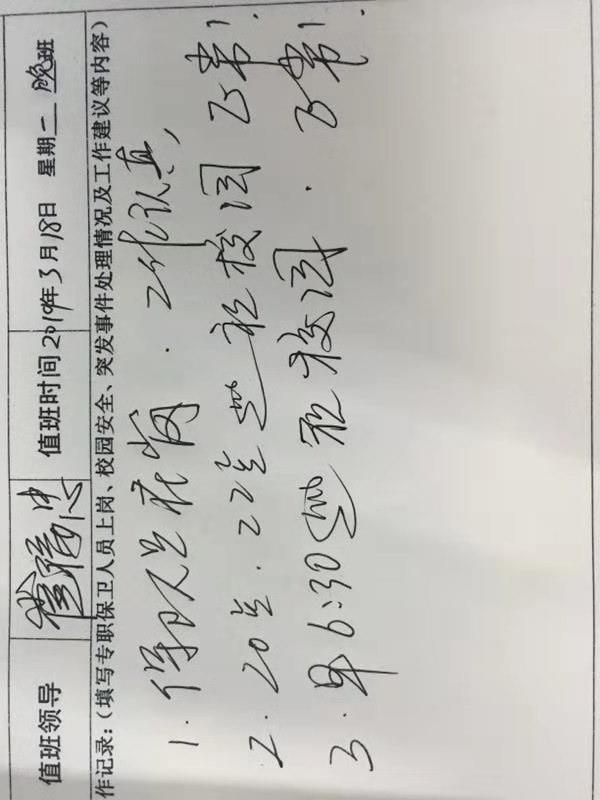 值班领导 崔福忠 值班时间 2019年3月18日 星期二 晚班
作记录:(填写专职保卫人员上岗、校园安全、突发事件处理情况及工作建议等内容)
1.保卫人员在岗.工作认真,
2.20点.22点巡视校园正常!.
3.早6:30巡视校园.正常!.